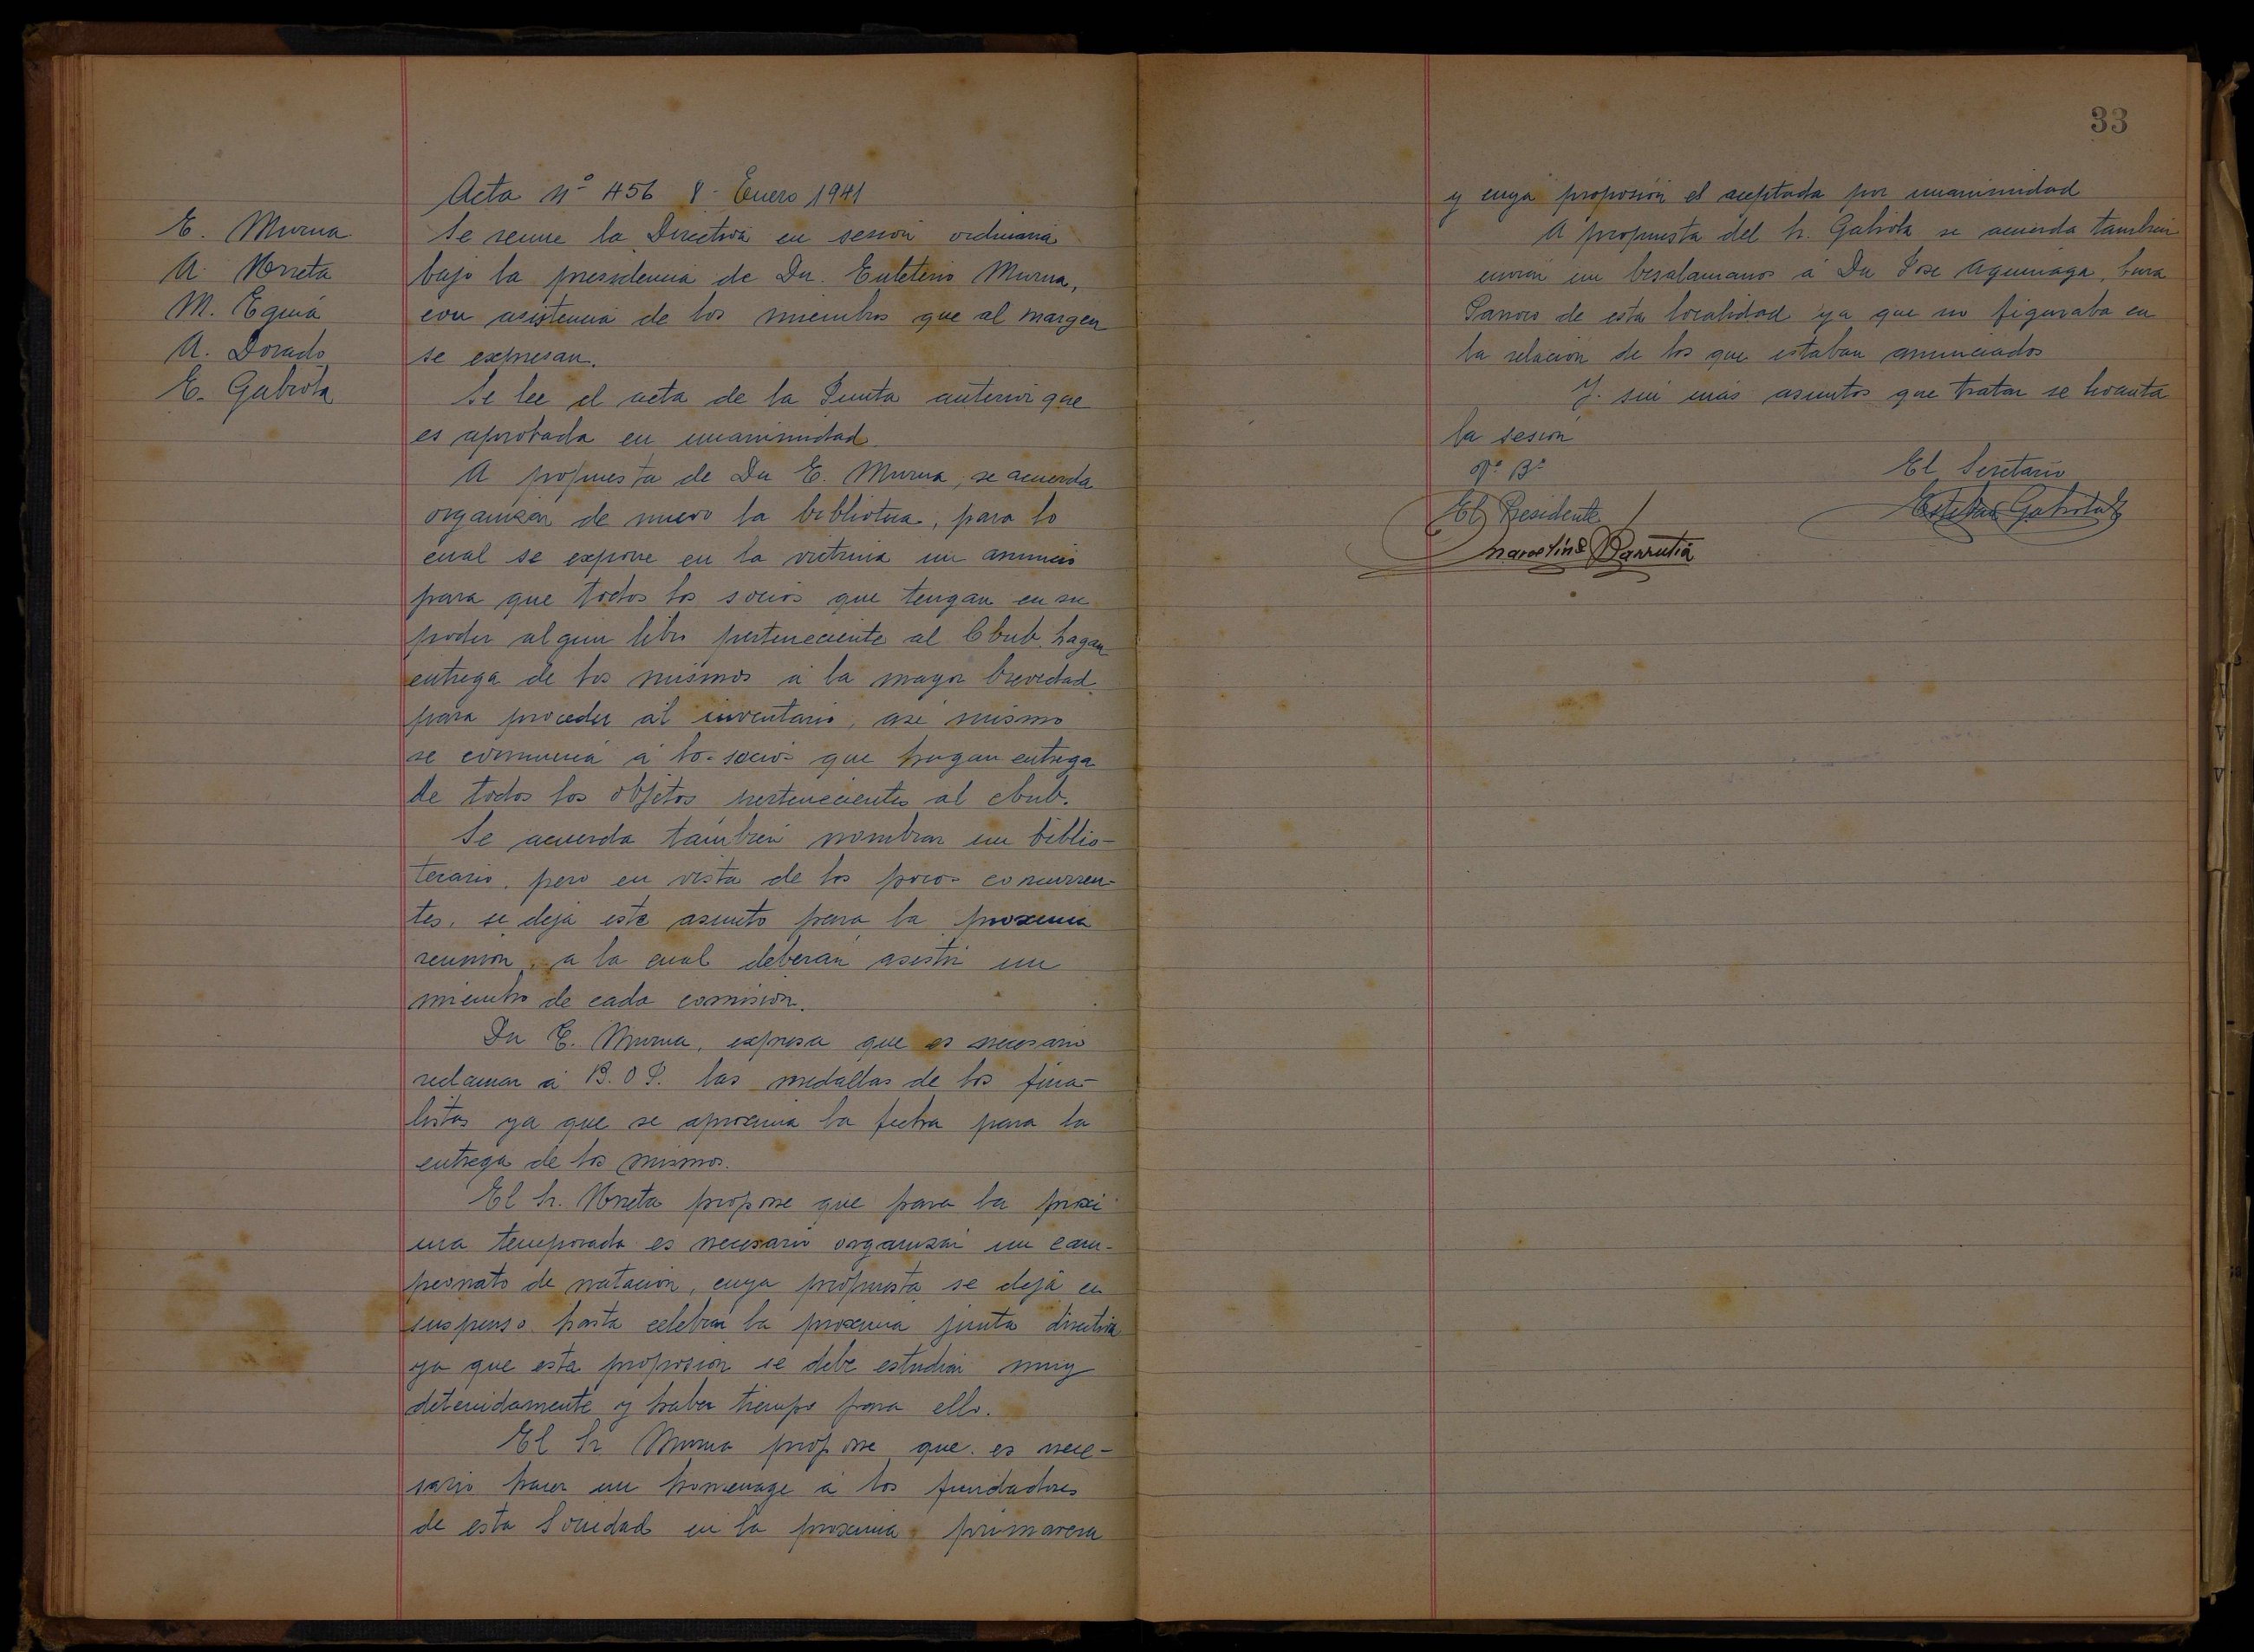 Acta nº 456 8- Enero 1941
E. Murua
A. Urreta
M. Eguia
A. Dorado
E. Gabiola
Se reune la Directiva en sesion ordinaria
bajo la presidencia de Dn. Euleterio Murua,
con asistencia de los miembros que al margen
se expresan.
Se lee el acta de la Junta anterior que
es aprobada en unanimidad
A propuesta de Dn E. Murua, se acuerda
organizar de nuevo la biblioteca, para lo
cual se expone en la vitrina un anuncio
para que todos los socios que tengan en su
poder algun libro perteneciente al Club, hagan
entrega de los mismos á la mayor brevedad
para proceder al inventario, asi mismo
se comunica á los socios que hagan entrega
de todos los objetos pertenecientes al club.
Se acuerda tambien nombrar un biblio-
tecario, pero en vista de los pocos concurren-
tes, se deja este asunto para la proxima
reunion, a la cual deberan asistir un
miembro de cada comision.
Dn E. Murua, expresa que es necesario
reclamar á B.O.P. las medallas de los fina-
listas ya que se aproxima la fecha para la
entrega de los mismos.
El Sr. Urreta propone que para la proxi-
ma temporada es necesario organizar un cam-
peonato de natacion, cuya propuesta se deja en
suspenso hasta celebrar la proxima junta directiva
ya que esta proposion se debe estudiar muy
detenidamente y haber tiempo para ello.
El Sr Murua propone que es nece-
sario hacer un homenage á los fundadores
de esta Sociedad en la proxima primavera
33
y cuya proposión es aceptada por unanimidad
A propuesta del Sr. Gabiola se acuerda tambien
enviar un besalamanos á Dn Jose Aguinaga, Cura
Parroco de esta localidad ya que no figuraba en
la relacion de los que estaban anunciados
Y sin más asuntos que tratar se levanta
la sesion
Vº Bº
El Secretario
El Presidente
Esteban Gabiola
Marcelino Barrutia